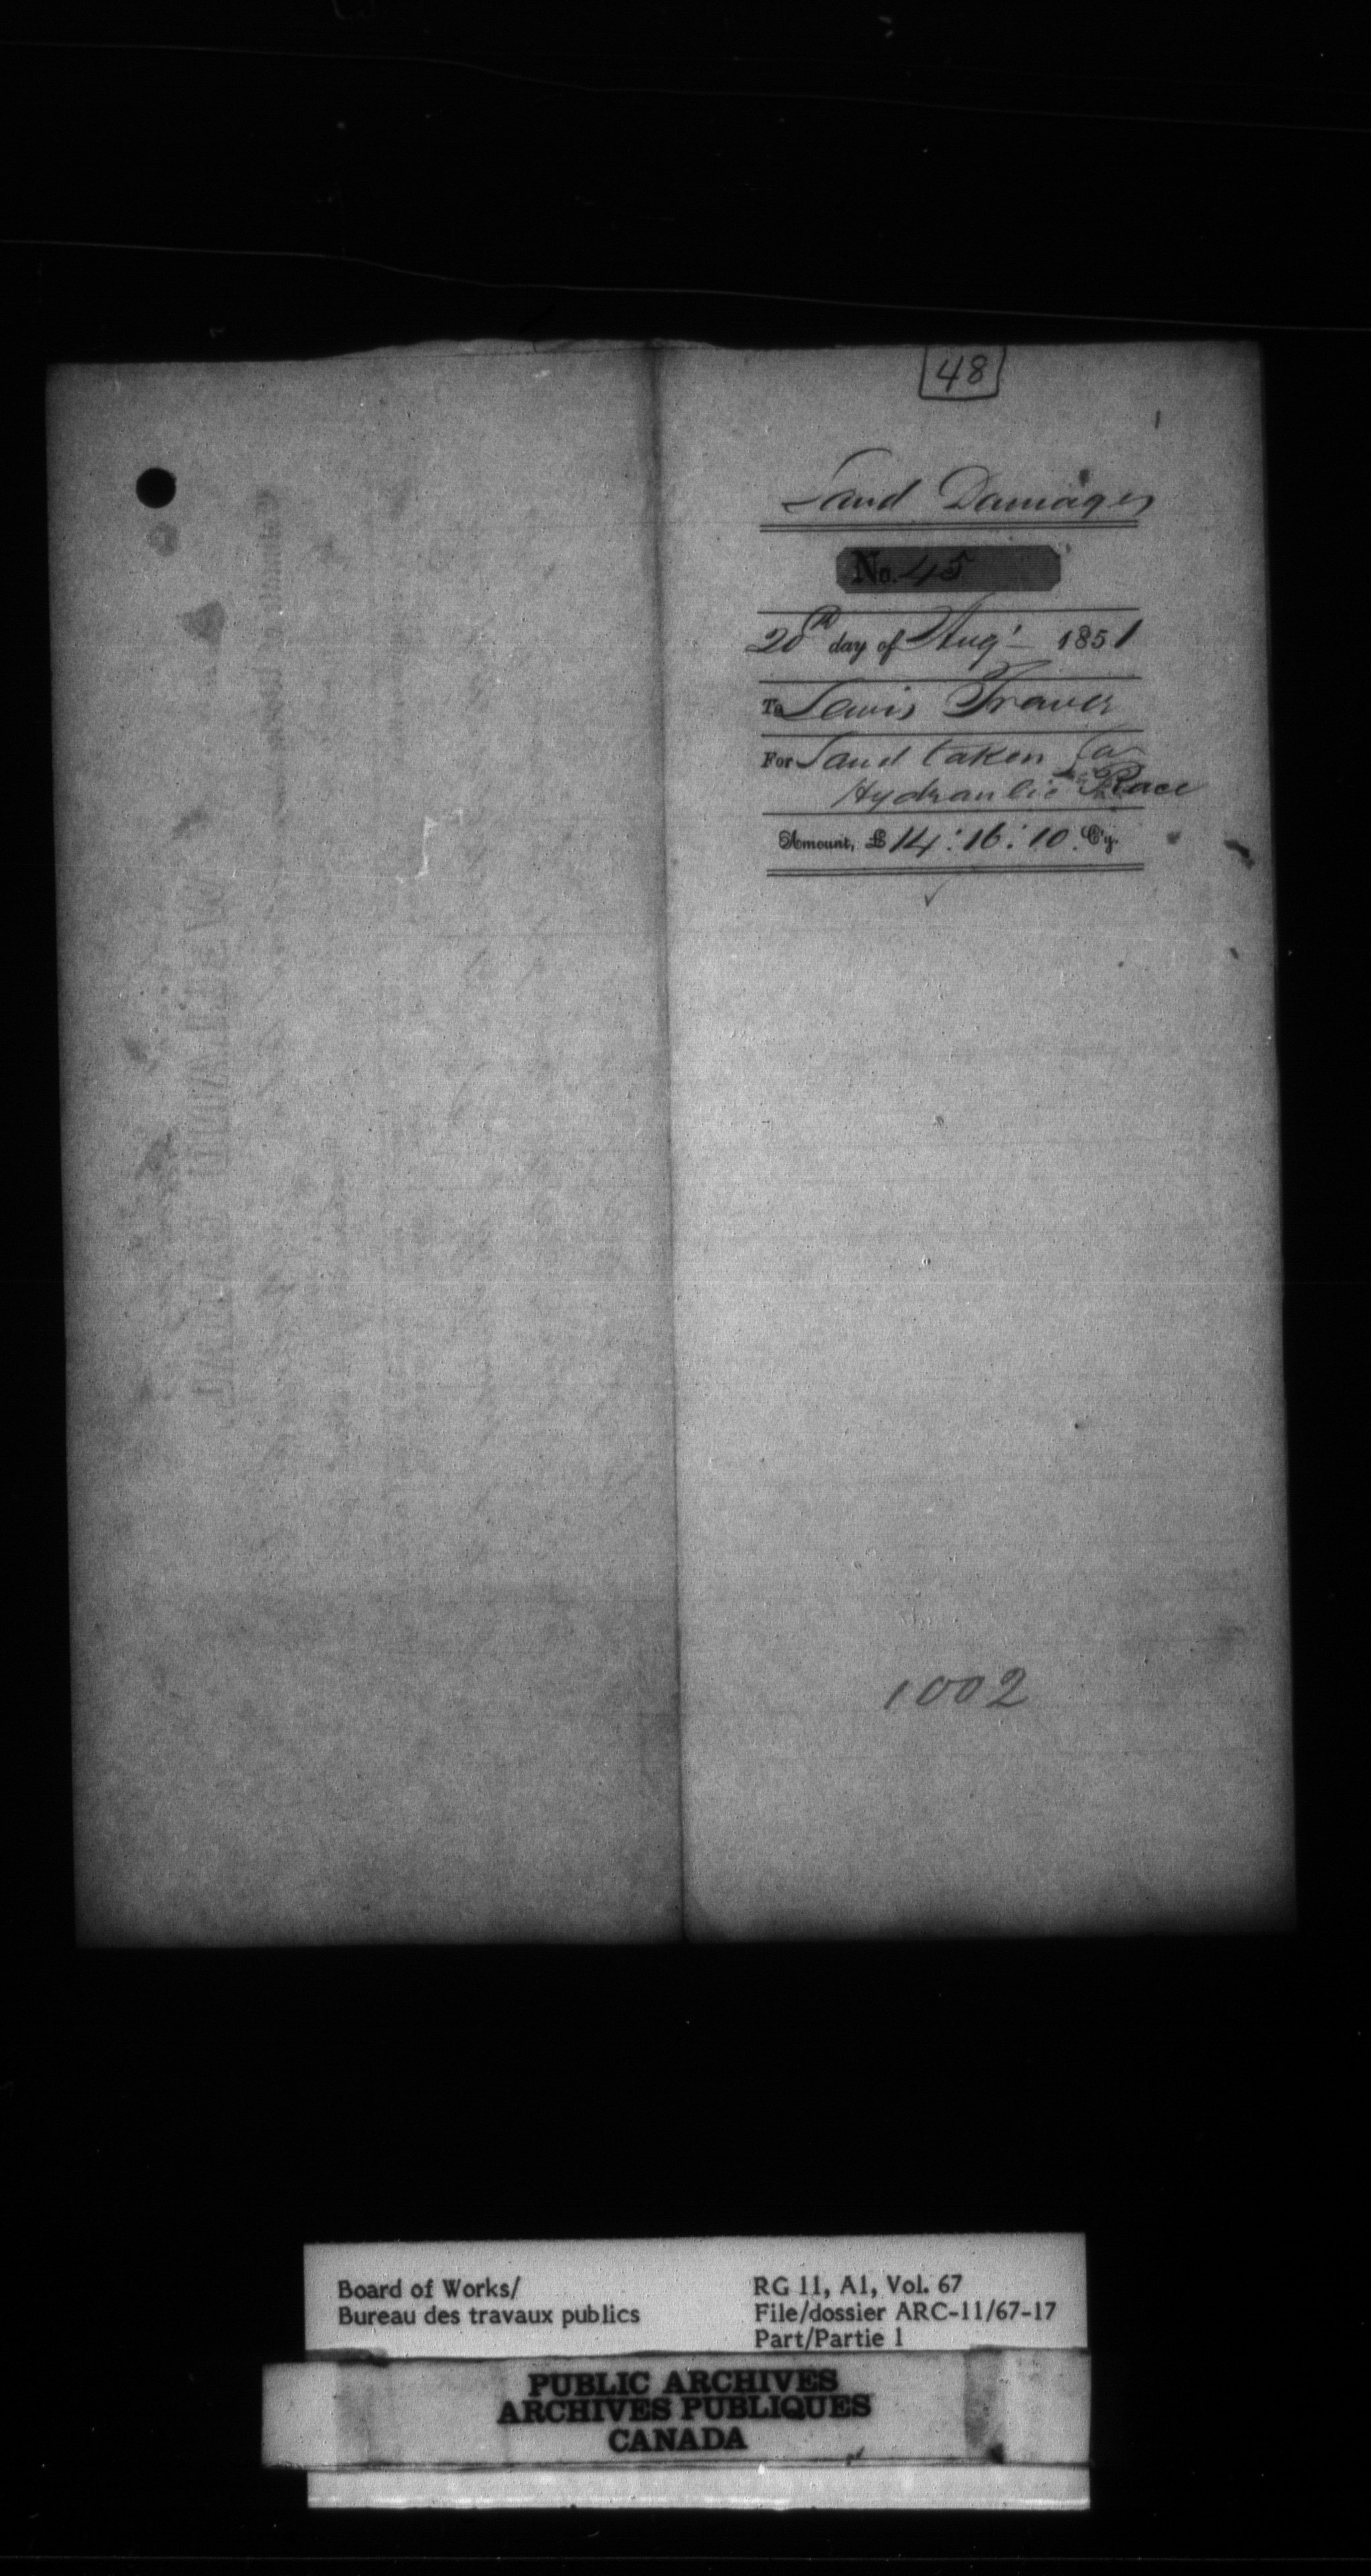 48
Land Damages
No. 45
20th day of Augt 1851
To Lewis Traver
For Land taken for
Hydraulic Race
Amount, £ 14 : 16 : 10 Cy.
1002
Board of Works/
Bureau des travaux publics
RG 11, A1, Vol. 67
File/dossier ARC-11/67-17
Part/Partie 1
PUBLIC ARCHIVES
ARCHIVES PUBLIQUES
CANADA